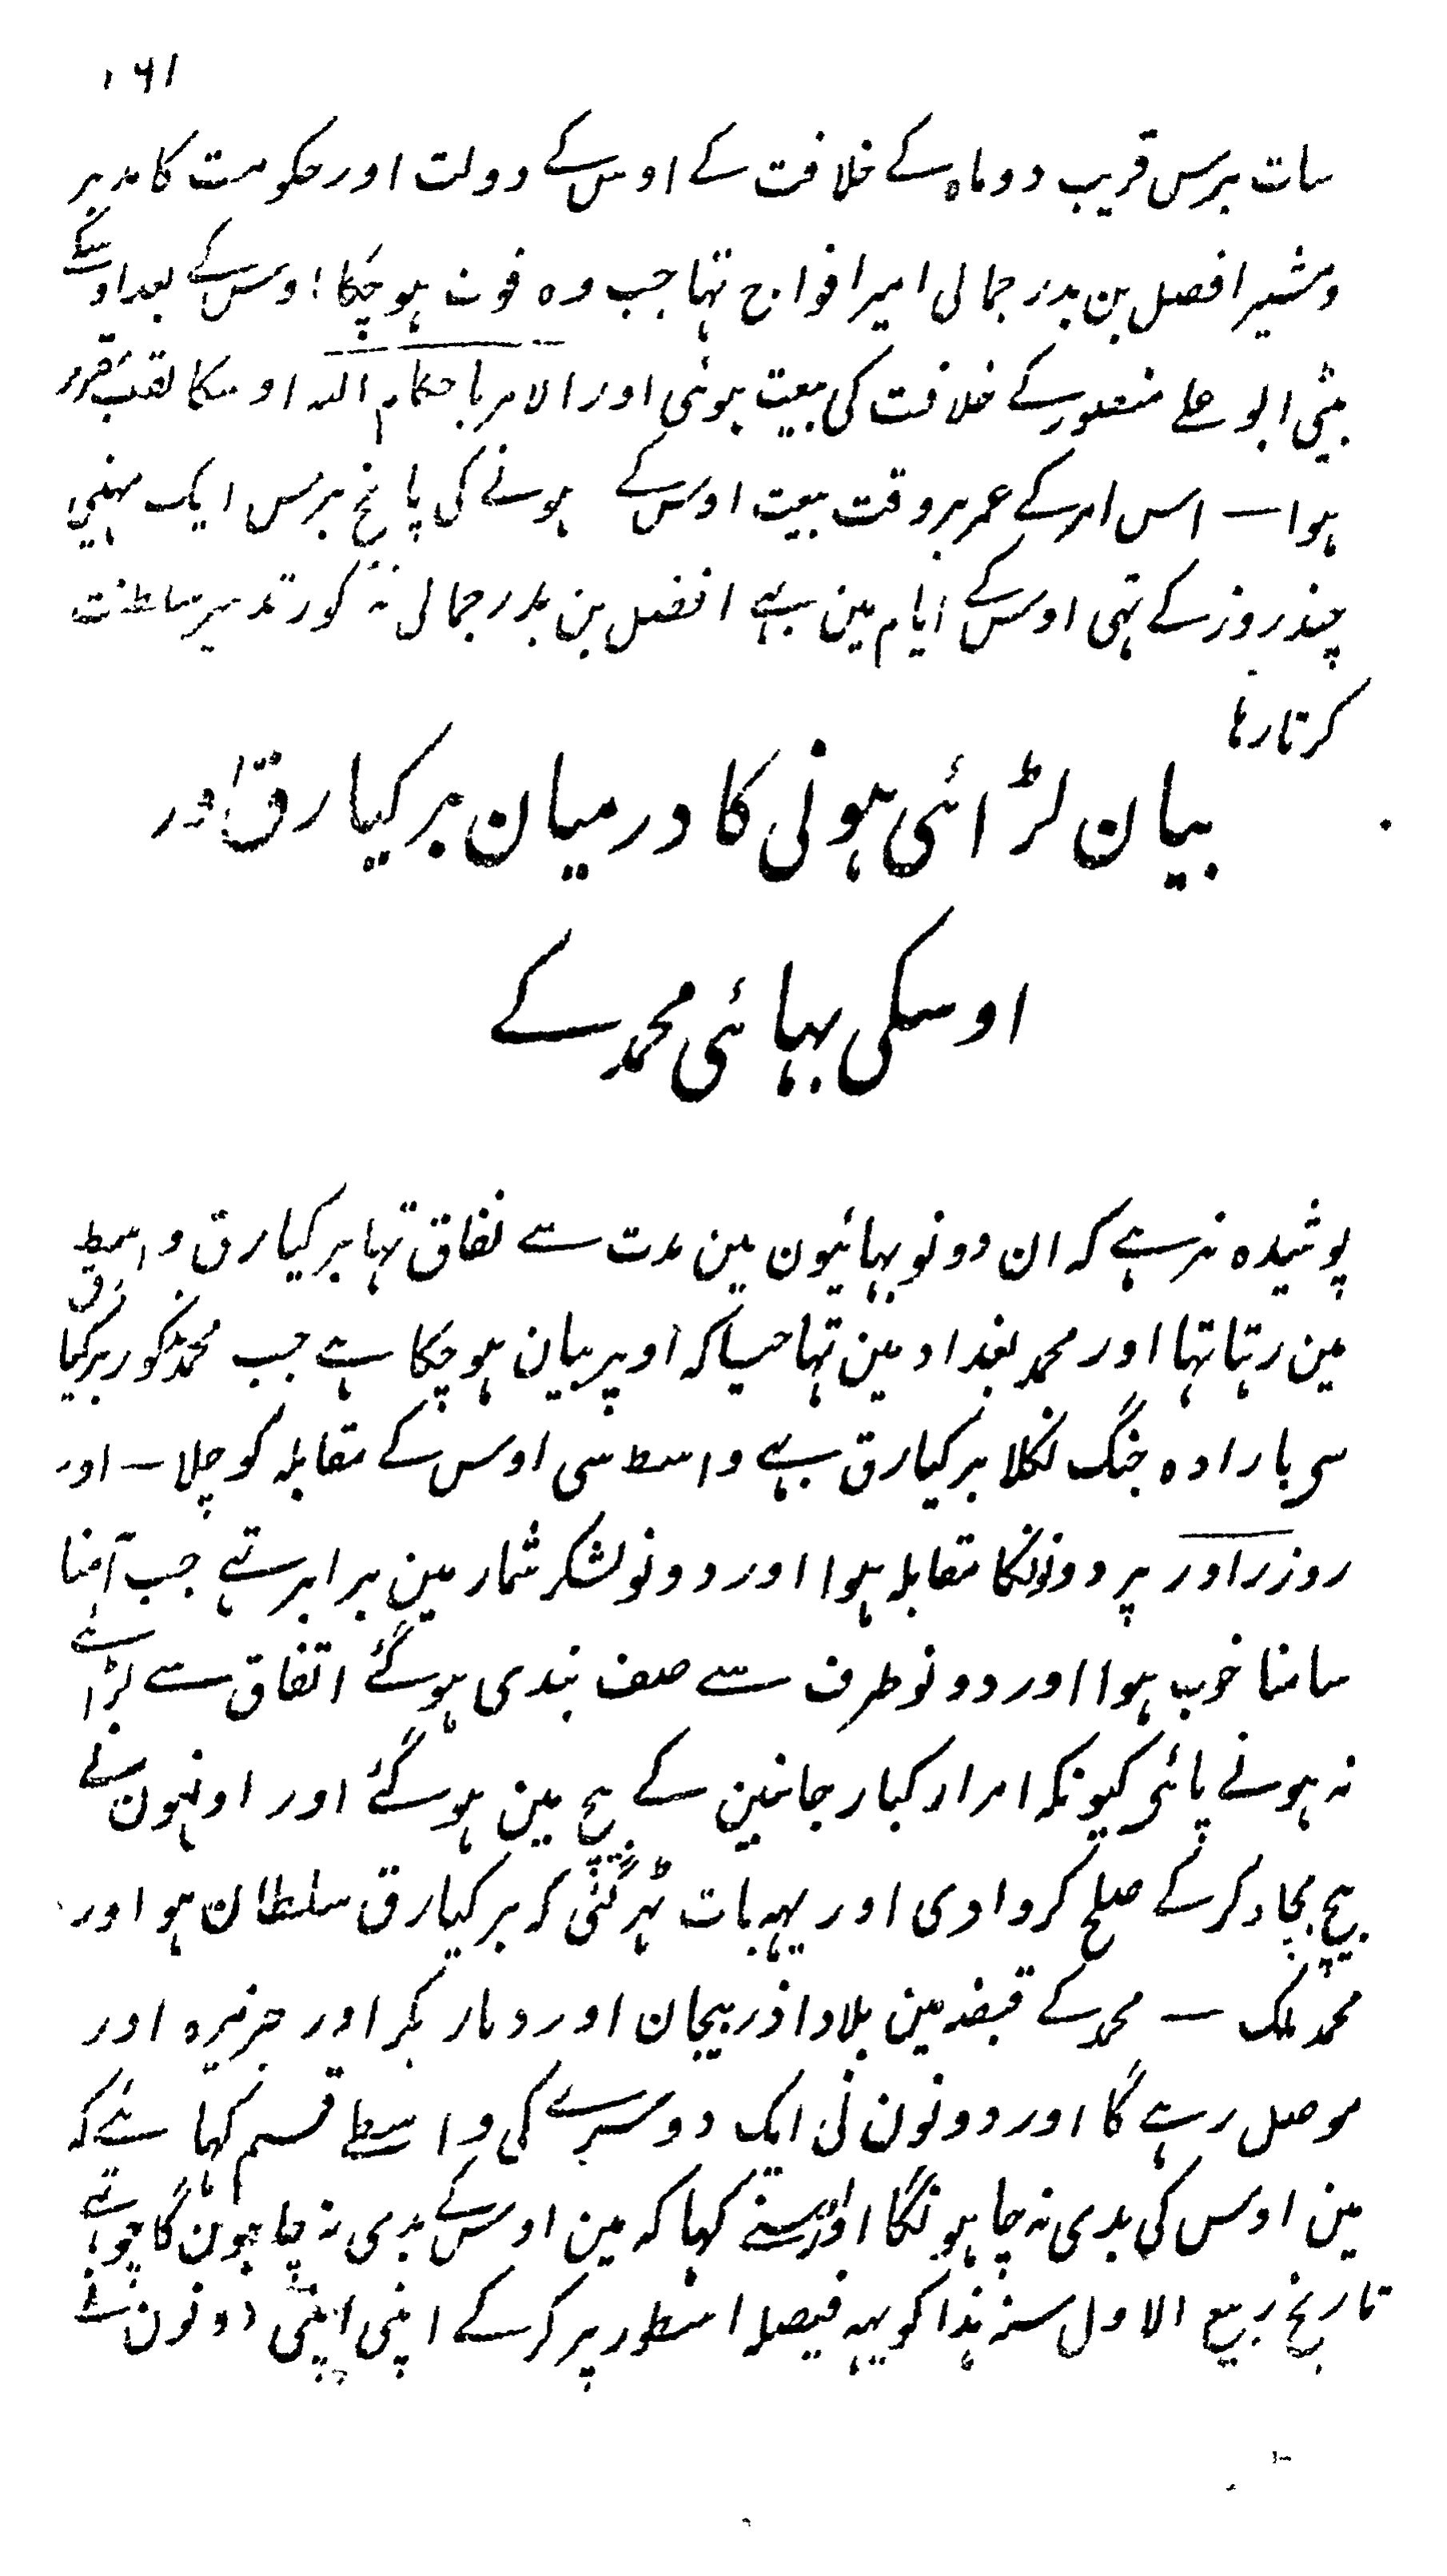 ۱۶۱
سات برس قریب دو ماہ کے خلافت کے اوس کے دولت اور حکومت کا مدبر
و مشیر افضل بن بدر جمالی امیر افواج تہا جب وہ فوت ہو چکا اوس کے بعد اوسکے
بیٹی ابو علے منصور کے خلافت کی بیعت ہوئی اور الامر باحکام اللہ اوسکا لقب مقرر
ہوا — اس امر کے عمر بر وقت بیعت اوس کے ہونے کی پانچ برس ایک مہنیی
چند روز کے تہی اوس کے ایام مین بہے افضل بن بدر جمالی مذکور تدبیر سلطنت
کرتا رہا
بیان لڑائی ہونی کا درمیان برکیارق اور
اوسکی بہائی محمد کے
پوشیدہ نر ہے کہ ان دونو بہائیون مین مدت سے نفاق تہا برکیارق واسط
مین رہتا تہا اور محمد بغداد مین تہا جیسا کہ اوپر بیان ہو چکا ہے جب محمد مذکور برکیارق
سی بارادہ جنگ نکلا برکیارق بہے واسط سی اوس کے مقابلہ کو چلا — اور
روزراور پر دونونکا مقابلہ ہوا اور دونو لشکر شمار مین برابر تہے جب آمنا
سامنا خوب ہوا اور دونو طرف سے صف بندی ہو گئے اتفاق سے لڑائے
نہ ہونے پائی کیونکہ امراء کبار جانبین کے بیچ مین ہو گئے اور اونہون نے
بیچ بچاو کر کے صلح کروا دی اور یہہ بات ٹہر گئی کہ برکیارق سلطان ہو اور
محمد ملک — محمد کے قبضہ مین بلاد اذربیجان اور دیار بکر اور جزیرہ اور
موصل رہے گا اور دونون نی ایک دوسرے کی واسطے قسم کہائے کہ
مین اوس کی بدی نہ چاہونگا اور اوسنے کہا کہ مین اوس کے بدی نہ چاہون گا چوتہے
تاریخ ربیع الاول سنہ ہذا کو یہہ فیصلہ اسطور پر کر کے اپنی اپنی دونون نے